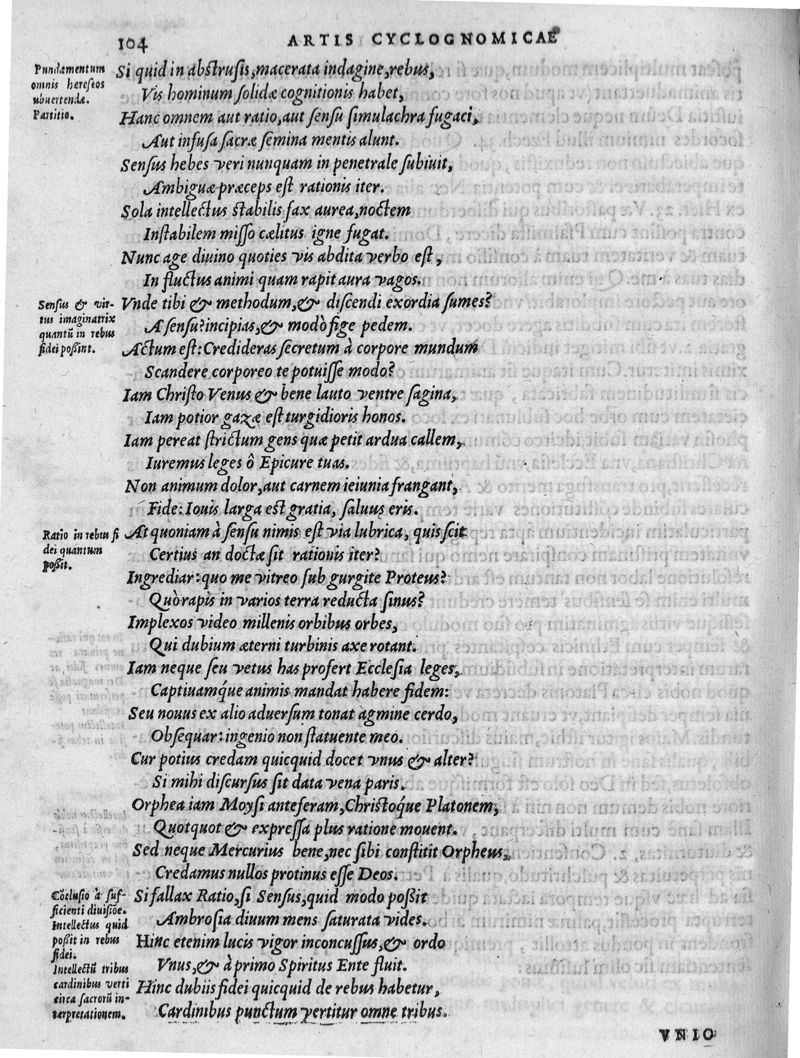 104 ARTIS CYCLOGNOMICAE
Fundamentum
omnis hæreseos
ubuertendæ.
Partitio.
Si quid in abstrusis, macerata indagine, rebus,
Vis hominum solidæ cognitionis habet,
Hanc omnem aut ratio, aut sensu simulachra fugaci,
Aut infusa sacræ semina mentis alunt.
Sensus hebes veri nunquam in penetrale subiuit,
Ambiguæ præceps est rationis iter.
Sola intellectus stabilis fax aurea, noctem
Instabilem misso cælitus igne fugat.
Nunc age diuino quoties vis abdita verbo est,
In fluctus animi quam rapit aura vagos.
Sensus & vir-
tus imaginatrix
quantũ in rebus
fidei possint.
Vnde tibi & methodum, & discendi exordia sumes?
A sensu? incipias, & modò fige pedem.
Actum est: Credideras secretum à corpore mundum
Scandere corporeo te potuisse modo?
Iam Christo Venus & bene lauto ventre sagina,
Iam potior gazæ est turgidioris honos.
Iam pereat strictum gens quæ petit ardua callem,
Iuremus leges ô Epicure tuas.
Non animum dolor, aut carnem ieiunia frangant,
Fide: Iouis larga est gratia, saluus eris.
Ratio in rebus fi
dei quantum
possit.
At quoniam à sensu nimis est via lubrica, quis scit
Certius an doctæ sit rationis iter?
Ingrediar: quo me vitreo sub gurgite Proteus?
Quò rapis in varios terra reducta sinus?
Implexos video millenis orbibus orbes,
Qui dubium æterni turbinis axe rotant.
Iam neque seu vetus has profert Ecclesia leges,
Captiuamq́ue animis mandat habere fidem:
Seu nouus ex alio aduersum tonat agmine cerdo,
Obsequar: ingenio non statuente meo.
Cur potius credam quicquid docet vnus & alter?
Si mihi discursus sit data vena paris.
Orphea iam Moysi anteferam, Christoq́ue Platonem,
Quotquot & expressa plus ratione mouent.
Sed neque Mercurius bene, nec sibi constitit Orpheus,
Credamus nullos protinus esse Deos.
Cõclusio à suf-
ficienti diuisiõe.
Intellectus quid
possit in rebus
fidei.
Intellectũ tribus
cardinibus verti
circa sacrorũ in-
terpretationem.
Si fallax Ratio, si Sensus, quid modo possit
Ambrosia diuum mens saturata vides.
Hinc etenim lucis vigor inconcussus, & ordo
Vnus, & à primo Spiritus Ente fluit.
Hinc dubiis fidei quicquid de rebus habetur,
Cardinibus punctum vertitur omne tribus.
VNIO